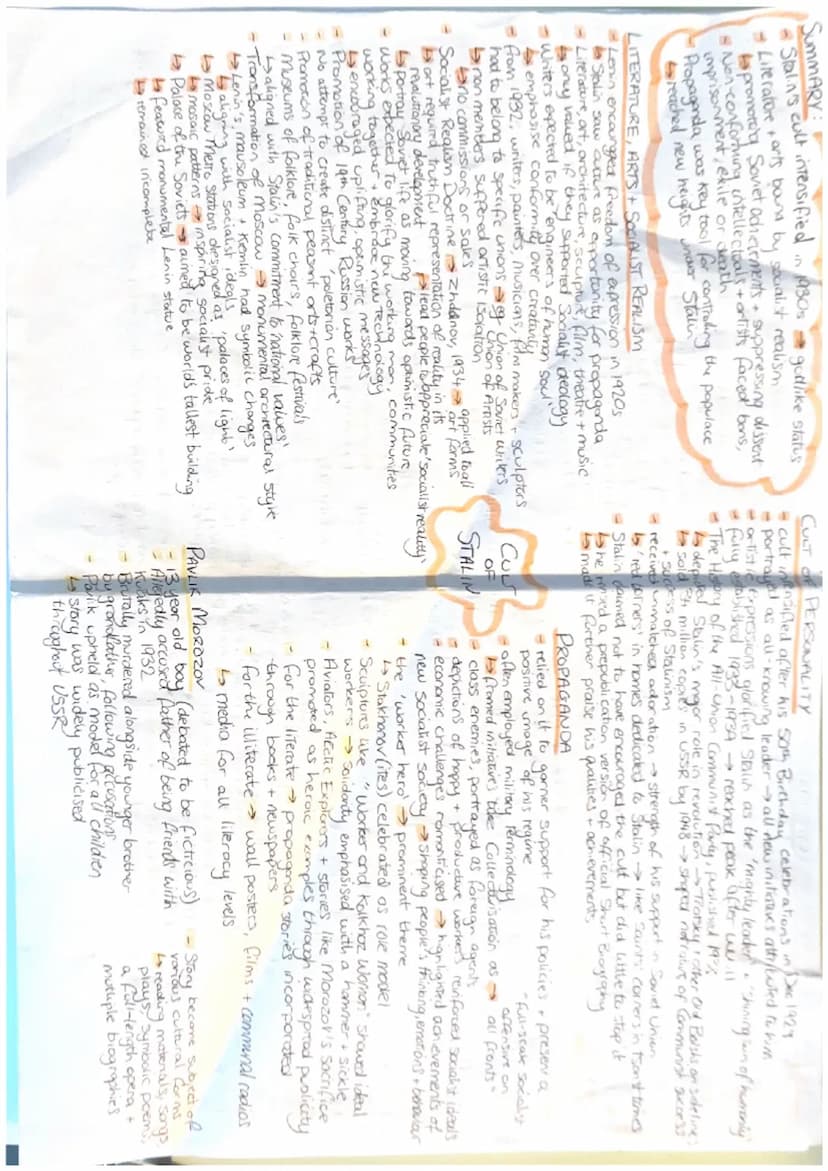 SUMMARY:
- Stalin's cult intensified in 1930s → godlike status
- Literature + arts bound by socialist realism
↳ promoting Soviet achievements + suppressing dissent
- Non-conforming intellectuals + artists faced bans,
imprisonment, exile or death
- Propaganda was key tool for controlling the populace
↳ reached new heights under Stalin
LITERATURE, ARTS + SOCIALIST REALISM
- Lenin encouraged freedom of expression in 1920s
↳ Stalin saw culture as opportunity for propaganda
- Literature, art, architecture, sculpture, film, theatre + music
↳ only valued if they supported Socialist ideology
- Writers expected to be 'engineers of human soul'
↳ emphasise conformity over creativity
- From 1932, writers, painters, musicians, film makers + sculptors
had to belong to specific unions → eg Union of Soviet Writers
↳ no commissions or sales Union of Artists
↳ non members suffered artistic isolation
- Socialist Realism Doctrine → Zhdanov, 1934 → applied to all
art forms
↳ art required 'truthful representation of reality in its
revolutionary development' → lead people to appreciate 'socialist reality'
↳ portray Soviet life as moving towards optimistic future
- Works expected to glorify the working man, communities
working together + embrace new technology
↳ encouraged uplifting, optimistic messages
- Promotion of 19th Century Russian works
- No attempt to create distinct 'proletarian culture'
- Promotion of traditional peasant arts + crafts
- Museums of folklore, folk choirs, folklore festivals
↳ aligned with Stalin's commitment to 'national values'
- Transformation of Moscow → monumental architectural style
↳ Lenin's mausoleum + Kremlin had symbolic changes
↳ aligning with socialist ideals
↳ Moscow Metro stations designed as 'palaces of light'
↳ mosaic patterns → inspiring socialist pride
↳ Palace of the Soviets → aimed to be worlds tallest building
↳ featured monumental Lenin statue
↳ remained incomplete
CULT OF PERSONALITY
- cult intensified after his 50th Birthday celebrations in Dec 1929
- portrayed as all-knowing leader → all new initiatives attributed to him
- artistic expressions glorified Stalin as the 'mighty leader' + 'shining sun of humanity'
- fully established 1933-1939 → reached peak after WWII
- The History of the All Union Communist Party, published 1938
↳ depicted Stalin's major role in revolution → Trotsky + other old Bolsh on sidelines
↳ sold 34 million copies in USSR by 1948 → shaped narrative of Communist success
+ success of Stalinism
- received unmatched adoration → strength of his support in Soviet Union
↳ 'red corners' in homes dedicated to Stalin → like Saint's corners in Tsarist times
- Stalin claimed not to have encouraged the cult but did little to stop it
↳ he revised a prepublication version of official Short Biography
↳ made it further praise his qualities + achievements
CULT
OF
STALIN
PROPAGANDA
- relied on it to garner support for his policies + present a
positive image of his regime
- often employed military terminology "full-scale socialist
↳ framed initiatives like Collectivisation as → offensive on
all fronts"
- class enemies, portrayed as foreign agents
- depictions of happy + productive workers reinforced socialist ideals
- economic challenges romanticised → highlighted achievements of
new socialist society → shaping people's thinking, emotions + behaviour
- the 'worker hero' → prominent theme
↳ Stakhanov(ites) celebrated as role model
- Sculptures like "Worker and Kolkhoz Woman" showed ideal
workers → solidarity emphasised with a hammer + sickle
- Aviators, Arctic Explorers + stories like Morozov's sacrifice
promoted as heroic examples through widespread publicity
- for the literate → propaganda stories incorporated
through books + newspapers
- for the illiterate → wall posters, films + communal radios
↳ media for all literacy levels
PAVLIK MOROZOV
- 13 year old boy (debated to be ficticious)
- Allegedly accused father of being friends with
Kulaks in 1932
- Brutally murdered alongside younger brother
by grandfather following accusations
- Pavlik upheld as model for all children
↳ story was widely publicised
throughout USSR
- Story became subject of
various cultural forms
↳ reading materials, songs,
plays, symbolic poems,
a full-length opera +
multiple biographies